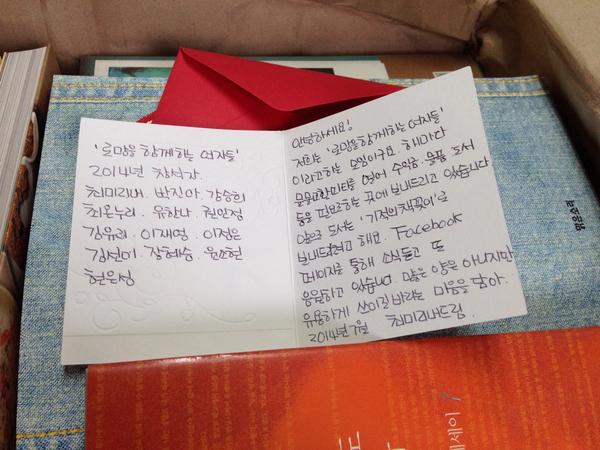 '로망을 함께하는 여자들'
2014년 참석자
최미리내. 박진아. 강승희
최온누리. 유하나. 권민정
김유리. 이재영. 이정은
김선미. 장혜승. 윤소현
현은성
안녕하세요!
저희는 '로망을 함께하는 여자들'
이라고하는 모임이구요. 해마다
물물교환파티를 열어 수익금. 물품. 도서
등을 필요로하는 곳에 보내드리고 있습니다
앞으로 도서는 '기적의 책꽂이'로
보내드리려고 해요. Facebook
페이지를 통해 소식듣고 또
응원하고 있습니다. 많은 양은 아니지만
유용하게 쓰이길 바라는 마음을 담아.
2014년 7월 최미리내드림.
맑은소리
에세이